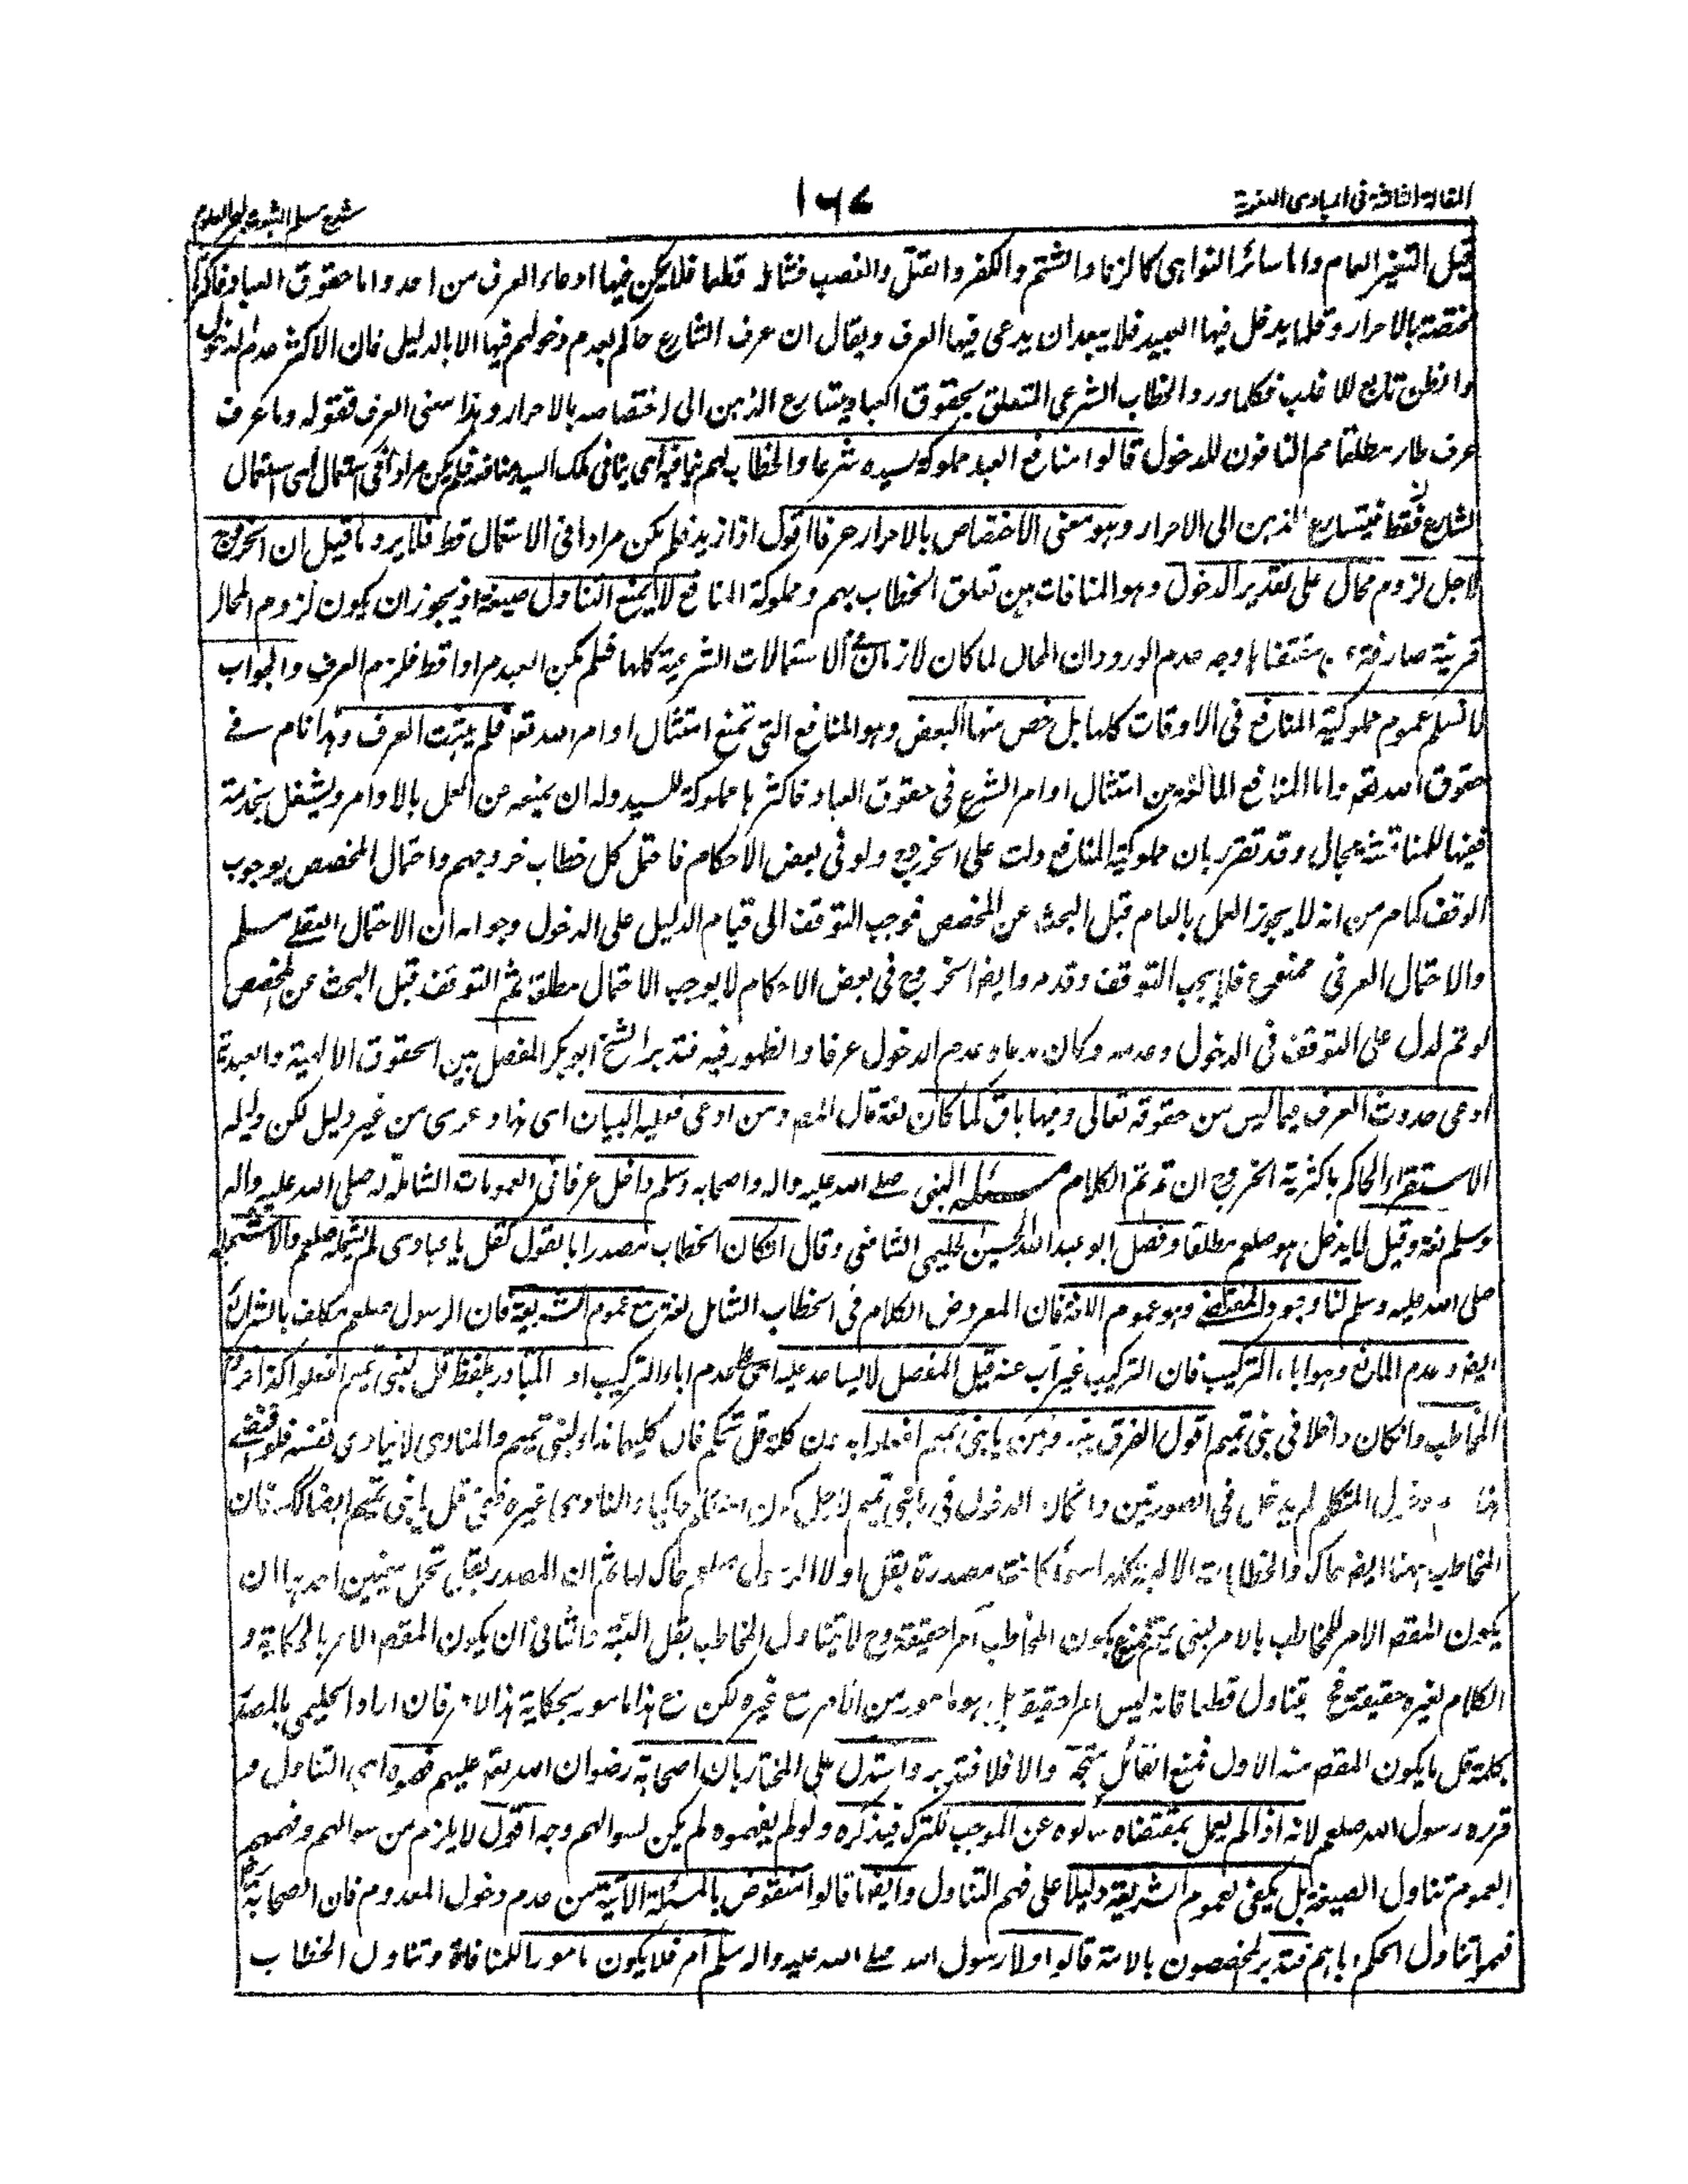 المقالة الثالثة في المبادي اللغوية
١٦٧
شرح مسلم الثبوت لبحر العلوم
قبيل التغير العام واما سائر النواهي كالزنا والشتم والكفر والقتل والغصب فشاملة قطعا فلا يمكن فيها ادعاء العرف من احد واما حقوق العباد فاكثرها
مختصة بالاحرار وقلما يدخل فيها العبيد فلا يبعد ان يدعى فيها العرف ويقال ان عرف الشارع حاكم بعدم دخولهم فيها الا بالدليل فان الاكثر عدم الدخول
والظن تابع للاغلب فكلما ورد الخطاب الشرعي المتعلق بحقوق العباد يتسارع الذهن الى اختصاصه بالاحرار وهذا معنى العرف فقوله وما عرف
عرف طار مطلقا مم النافون للدخول قالوا منافع العبد مملوكة لسيده شرعا والخطاب لهم ينافيه اي ينافي ملك السيد منافعه فلم يكن مرادا في استعمال اي استعمال
الشارع فقط فيتسارع الذهن الى الاحرار وهو معنى الاختصاص بالاحرار عرفا اقول اذا زيد فلم يكن مرادا في الاستعمال قط فلا يرد ما قيل ان الخروج
لاجل لزوم محال على تقدير الدخول وهو المنافات بين تعلق الخطاب بهم ومملوكية المنافع لا يمنع التناول صيغة اذ يجوز ان يكون لزوم المحال
قرينة صارفة عن مقتضاها وجه عدم الورود ان المحال لما كان لازما في الاستعمالات الشرعية كلها فلم يكن العبد مرادا قط فلزم العرف والجواب
لا نسلم عموم مملوكية المنافع في الاوقات كلها بل خص منها البعض وهو المنافع التي تمنع امتثال اوامر الله تعه فلم يثبت العرف وهذا تام في
حقوق الله تعه واما المنافع المانعة من امتثال اوامر الشرع في حقوق العباد فاكثرها مملوكة للسيد وله ان يمنعه من العمل بالاوامر ويشغل بخدمته
ففيها للمناقشة مجال وقد تقرر بان مملوكية المنافع دلت على الخروج ولو في بعض الاحكام فاحتمل كل خطاب خروجهم واحتمال المخصص يوجب
الوقف كما مر من انه لا يجوز العمل بالعام قبل البحث عن المخصص فوجب التوقف الى قيام الدليل على الدخول وجوابه ان الاحتمال العقلي مسلم
والاحتمال العرفي ممنوع فلا يجب التوقف وقد مر وايضا الخروج في بعض الاحكام لا يوجب الاحتمال مطلقا ثم التوقف قبل البحث عن المخصص
لو تم لدل على التوقف في الدخول وعدمه وكان مدعاه عدم الدخول عرفا والظهور فيه فتدبر الشيخ ابو بكر المفصل بين الحقوق الالهية والعبدية
ادعى حدوث العرف فيما ليس من حقوقه تعالى وفيها باق كما كان لغة قال المصـ ومن ادعى فعليه البيان اي هذا دعوى من غير دليل لكن دليله
الاستقراء الحاكم باكثرية الخروج ان تم تم الكلام مسئلة النبي صلى الله عليه واله واصحابه وسلم داخل عرفا في العمومات الشاملة له صلى الله عليه واله
وسلم لغة وقيل لا يدخل هو صلعم مطلقا وفصل ابو عبد الله الحسين الحليمي الشافعي وقال ان كان الخطاب مصدرا بالقول كقل يا عبادي لم يشمله صلعم والا شمله
صلى الله عليه وسلم لنا وجود المقتضي وهو عموم اللغة فان المعروض الكلام في الخطاب الشامل لغة مع عموم الشريعة فان الرسول صلعم مكلف بالشرائع
ايضا وعدم المانع وهو اباء التركيب فان التركيب غير آب عنه قيل المفصل لا يساعد عليه اي على عدم اباء التركيب اذ المتبادر بلفظ قل لبني تميم افعلوا كذا خروج
المخاطب وان كان داخلا في بني تميم اقول الفرق بينه وبين يا بني تميم افعلوا بدون كلمة قل تحكم فان كليهما نداء لبني تميم والمنادي لا ينادي نفسه فلو اقتضى
هذا عدم دخول المتكلم لم يدخل في الصورتين وان كان الدخول في يا بني تميم لاجل كون المتكلم حاكيا والمنادي غيره ففي قل يا بني تميم ايضا كك فان
المخاطب ههنا ايضا حاك والخطابات الالهية كلها سواء كانت مصدرة بقل او لا الرسول صلعم حاك لها ثم ان المصدر بقل تحتمل معنيين احدهما ان
يكون المقصـ الامر للمخاطب بالامر لبني تميم فيكون المخاطب آمرا حقيقة وح لا يتناول المخاطب بقل البتة والثاني ان يكون المقصـ الامر بالحكاية و
الكلام لغيره حقيقة فح يتناول قطعا فانه ليس امرا حقيقة بل هو مامور من الآمر مع غيره لكن مع هذا مامور بحكاية هذا الامر فان اراد الحليمي بالمصدر
بكلمة قل ما يكون المقصـ منه الاول فمنع القائل متجه والا فلا فتدبر واستدل على المختار بان الصحابة رضوان الله تعه عليهم فهموه اي التناول و
قرره رسول الله صلعم لانه اذا لم يعمل بمقتضاه سالوه عن الموجب للترك فيذكره ولو لم يفهموه لم يكن لسوالهم وجه اقول لا يلزم من سوالهم وفهمهم
العموم تناول الصيغة بل يكفي لعموم الشريعة دليلا على فهم التناول وايضا ما قالوا منقوض بالمسئلة الآتية من عدم دخول المعدوم فان الصحابة
فهموا تناول الحكم اياهم فتدبر المخصصون بالامة قالوا اولا رسول الله صلى الله عليه واله وسلم آمر فلا يكون مامورا للمنافاة وتناول الخطاب